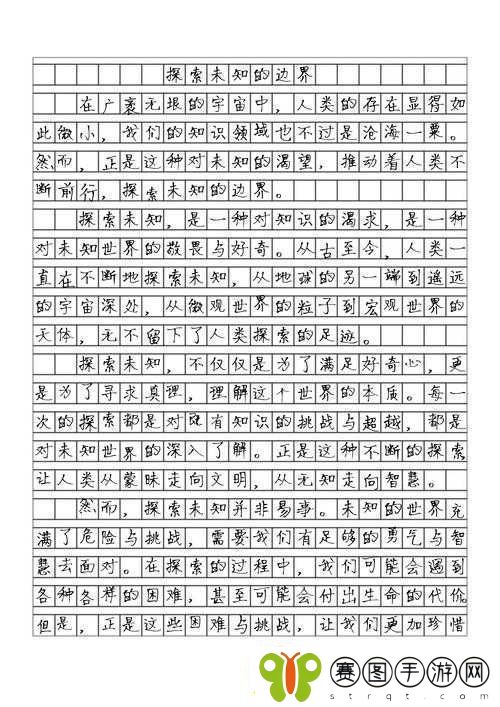 探索未知的边界
在广袤无垠的宇宙中，人类的存在显得如
此微小，我们的知识领域也不过是沧海一粟。
然而，正是这种对未知的渴望，推动着人类不
断前行，探索未知的边界。
探索未知，是一种对知识的渴求，是一种
对未知世界的敬畏与好奇。从古至今，人类一
直在不断地探索未知，从地球的另一端到遥远
的宇宙深处，从微观世界的粒子到宏观世界的
天体，无不留下了人类探索的足迹。
探索未知，不仅仅是为了满足好奇心，更
是为了寻求真理，理解这个世界的本质。每一
次的探索都是对既有知识的挑战与超越，都是
对未知世界的深入了解。正是这种不断的探索
让人类从蒙昧走向文明，从无知走向智慧。
然而，探索未知并非易事。未知的世界充
满了危险与挑战，需要我们有足够的勇气与智
慧去面对。在探索的过程中，我们可能会遇到
各种各样的困难，甚至可能会付出生命的代价。
但是，正是这些困难与挑战，让我们更加珍惜
赛图手游网
strqt.com